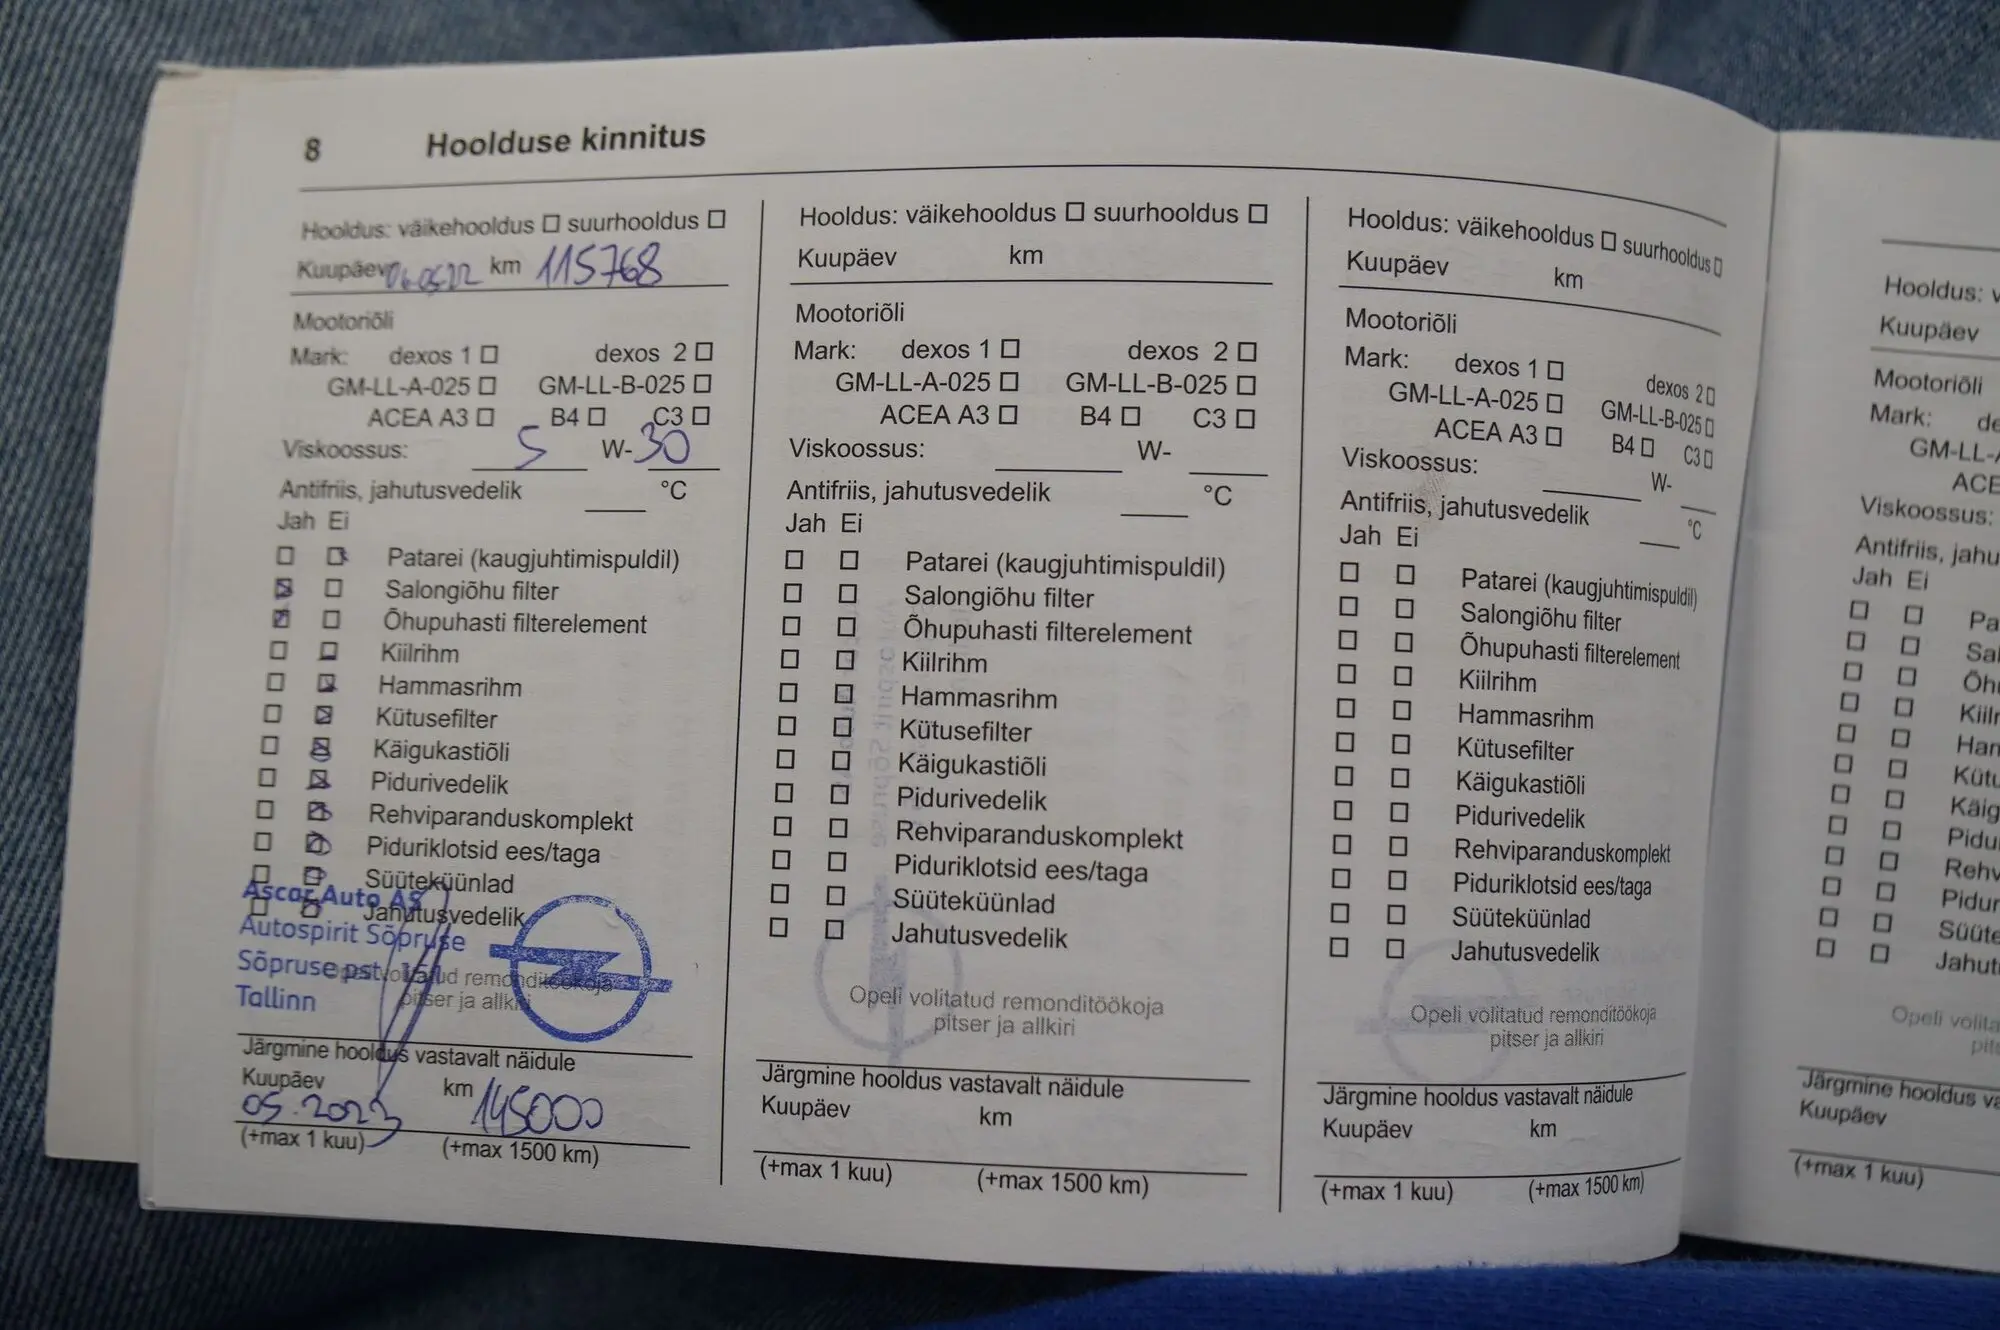 8 Hoolduse kinnitus
Hooldus: väikehooldus ☐ suurhooldus ☐
Kuupäev 04.05.22 km 115768
Mootoriõli
Mark: dexos 1 ☐ dexos 2 ☐
GM-LL-A-025 ☐ GM-LL-B-025 ☐
ACEA A3 ☐ B4 ☐ C3 ☐
Viskoossus: 5 W-30
Antifriis, jahutusvedelik °C
Jah Ei
Patarei (kaugjuhtimispuldil)
Salongiõhu filter
Õhupuhasti filterelement
Kiilrihm
Hammasrihm
Kütusefilter
Käigukastiõli
Pidurivedelik
Rehviparanduskomplekt
Piduriklotsid ees/taga
Süüteküünlad
Jahutusvedelik
Ascar Auto AS
Autospirit Sõpruse
Sõpruse pst.
Tallinn
Opeli volitatud remonditöökoja
pitser ja allkiri
Järgmine hooldus vastavalt näidule
Kuupäev km
05.2023 145000
(+max 1 kuu) (+max 1500 km)
Hooldus: väikehooldus ☐ suurhooldus ☐
Kuupäev km
Mootoriõli
Mark: dexos 1 ☐ dexos 2 ☐
GM-LL-A-025 ☐ GM-LL-B-025 ☐
ACEA A3 ☐ B4 ☐ C3 ☐
Viskoossus: W-
Antifriis, jahutusvedelik °C
Jah Ei
Patarei (kaugjuhtimispuldil)
Salongiõhu filter
Õhupuhasti filterelement
Kiilrihm
Hammasrihm
Kütusefilter
Käigukastiõli
Pidurivedelik
Rehviparanduskomplekt
Piduriklotsid ees/taga
Süüteküünlad
Jahutusvedelik
Opeli volitatud remonditöökoja
pitser ja allkiri
Järgmine hooldus vastavalt näidule
Kuupäev km
(+max 1 kuu) (+max 1500 km)
Hooldus: väikehooldus ☐ suurhooldus ☐
Kuupäev km
Mootoriõli
Mark: dexos 1 ☐ dexos 2 ☐
GM-LL-A-025 ☐ GM-LL-B-025 ☐
ACEA A3 ☐ B4 ☐ C3 ☐
Viskoossus: W-
Antifriis, jahutusvedelik °C
Jah Ei
Patarei (kaugjuhtimispuldil)
Salongiõhu filter
Õhupuhasti filterelement
Kiilrihm
Hammasrihm
Kütusefilter
Käigukastiõli
Pidurivedelik
Rehviparanduskomplekt
Piduriklotsid ees/taga
Süüteküünlad
Jahutusvedelik
Opeli volitatud remonditöökoja
pitser ja allkiri
Järgmine hooldus vastavalt näidule
Kuupäev km
(+max 1 kuu) (+max 1500 km)
Hooldus: v
Kuupäev
Mootoriõli
Mark: de
GM-LL-
ACE
Viskoossus:
Antifriis, jahu
Jah Ei
Pa
Sal
Õh
Kiilr
Ham
Kütu
Käig
Pidu
Rehv
Pidur
Süüte
Jahut
Opeli volita
pits
Järgmine hooldus va
Kuupäev
(+max 1 kuu)